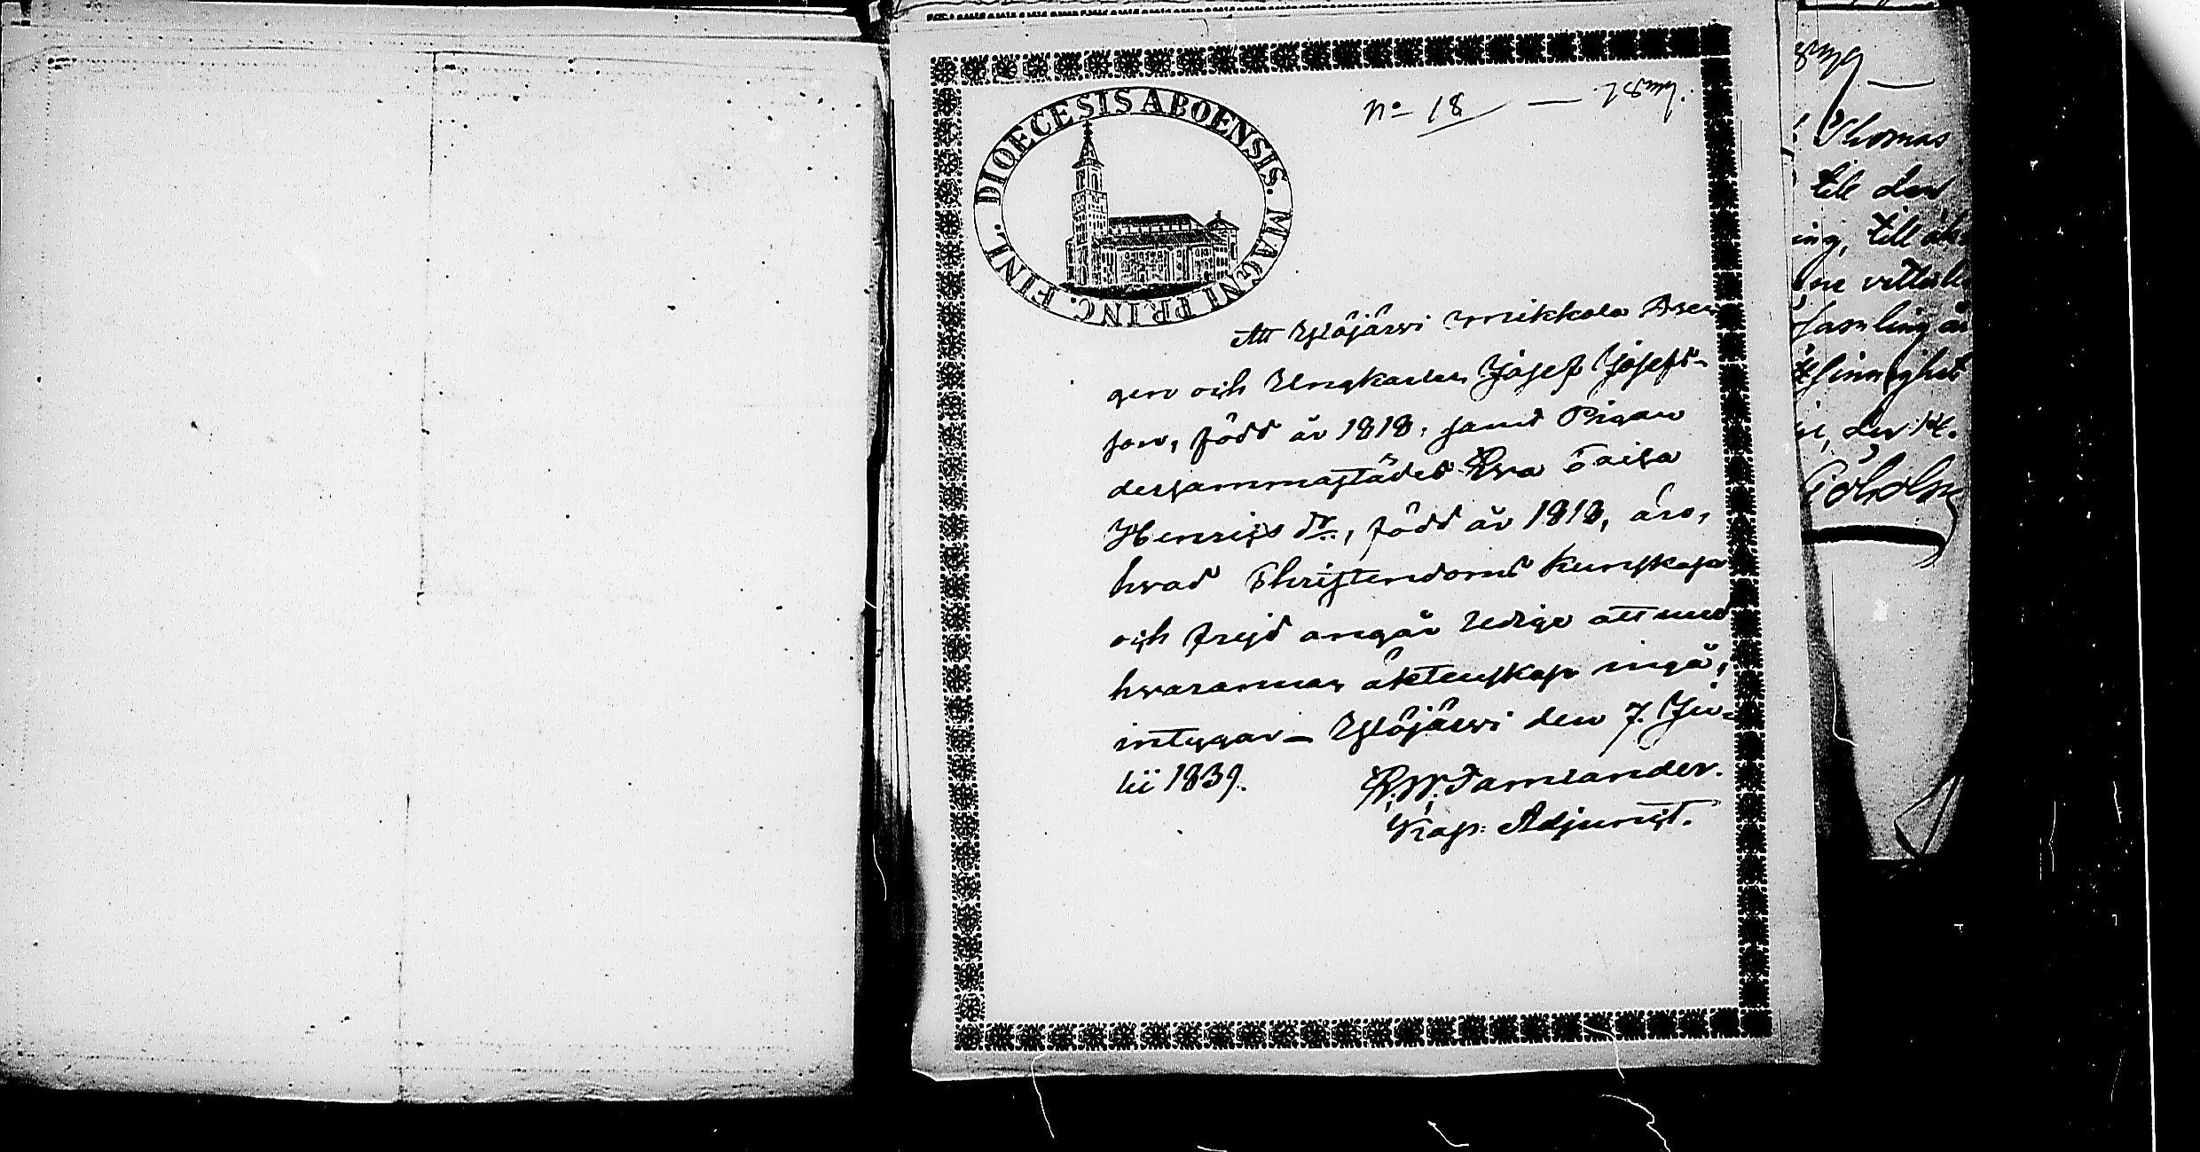 DIOECESIS ABOENSIS. MAGNI PRINC. FINL.
No 18
Att Ylöjärvi Mikkola Dren
gen och Ungkarlen Josef Josefs-
son, född år 1818, samt Pigan
dersammastädes Eva Caisa
Henrics dr., född år 1818, äro,
hvad Christendoms kunskap
och frejd angår ledige att med
hvarannan äktenskap ingå,
intygar_ Ylöjärvi den 7. Ju-
lii 1839.
Tamlander.
Kap: Adjunct.
Thomas
till den
ing, till
ne
samling är
den 14.